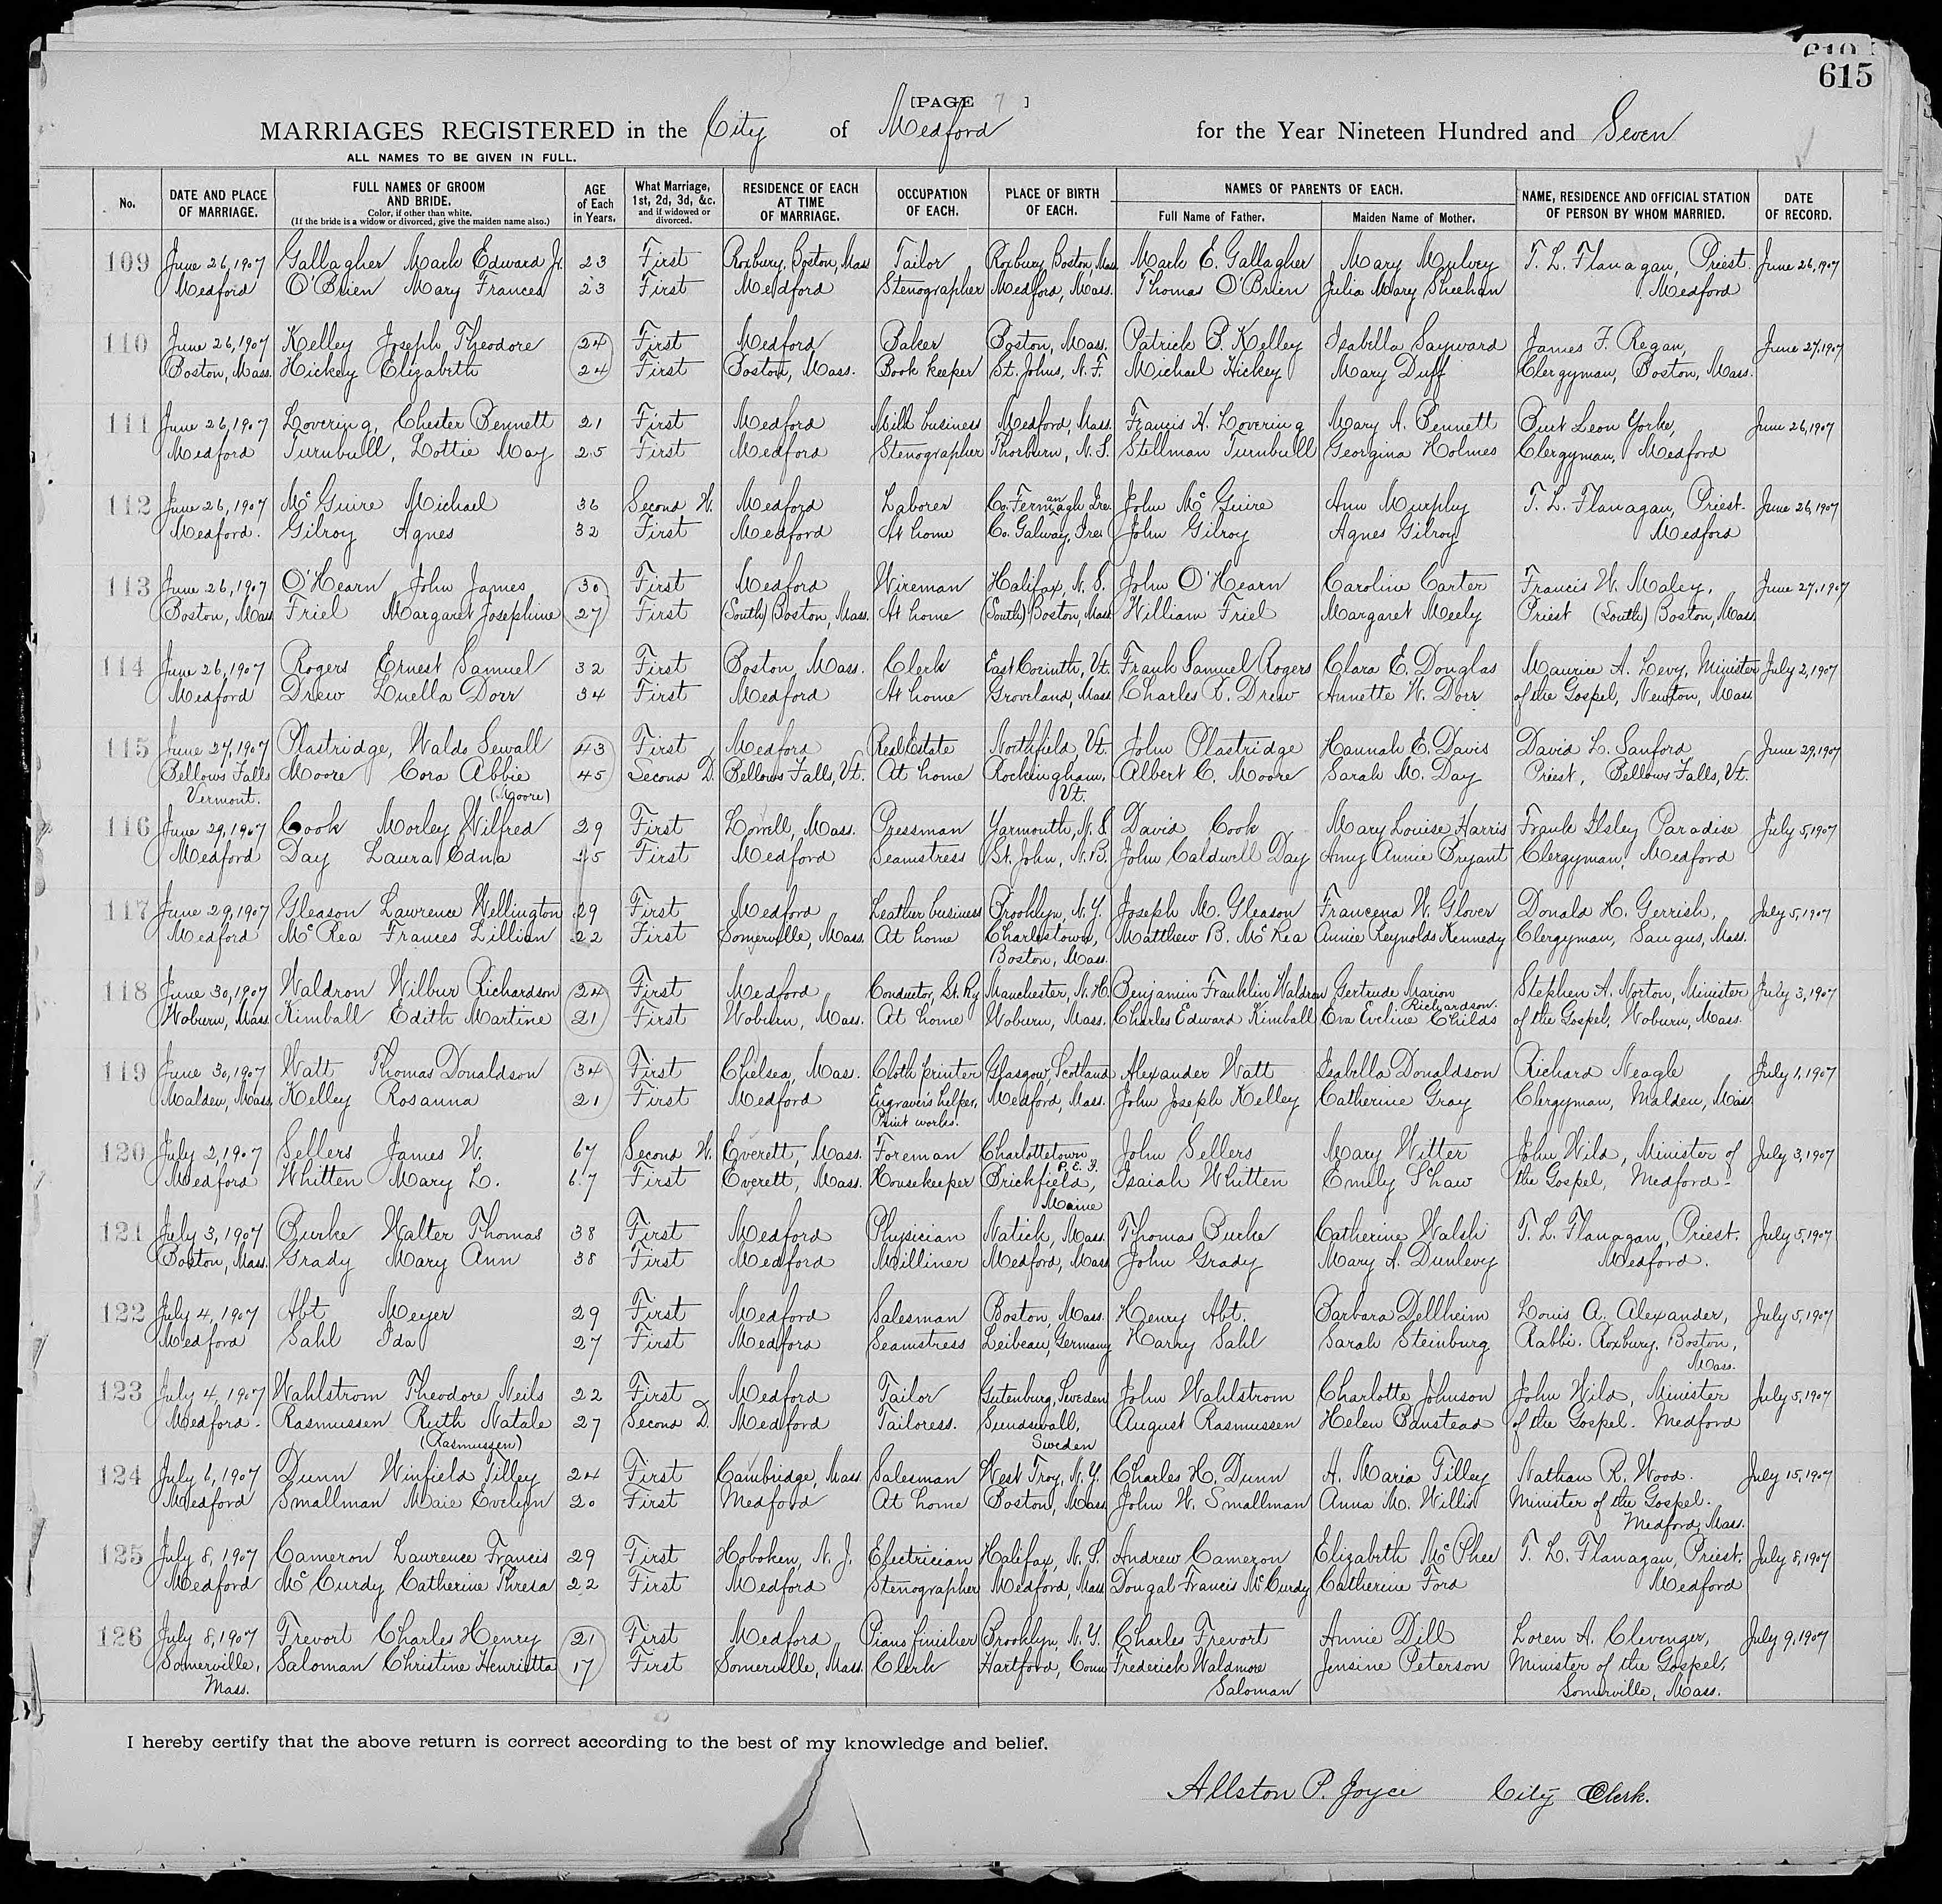 615
[PAGE 7 ]
MARRIAGES REGISTERED in the City of Medford for the Year Nineteen Hundred and Seven
ALL NAMES TO BE GIVEN IN FULL.
No. DATE AND PLACE OF MARRIAGE. FULL NAMES OF GROOM AND BRIDE. Color, if other than white. (If the bride is a widow or divorced, give the maiden name also.) AGE of Each in Years. What Marriage, 1st, 2d, 3d, &c. and if widowed or divorced. RESIDENCE OF EACH AT TIME OF MARRIAGE. OCCUPATION OF EACH. PLACE OF BIRTH OF EACH. NAMES OF PARENTS OF EACH. Full Name of Father. Maiden Name of Mother. NAME, RESIDENCE AND OFFICIAL STATION OF PERSON BY WHOM MARRIED. DATE OF RECORD.
109 June 26, 1907 Gallagher Mark Edward Jr. 23 First Roxbury, Boston, Mass Tailor Roxbury, Boston, Mass. Mark E. Gallagher Mary Mulvey T. L. Flanagan, Priest June 26, 1907
Medford O'Brien Mary Frances 23 First Medford Stenographer Medford, Mass. Thomas O'Brien Julia Mary Sheehan Medford
110 June 26, 1907 Kelley Joseph Theodore 24 First Medford Baker Boston, Mass. Patrick P. Kelley Isabella Sayward James F. Regan, June 27, 1907
Boston, Mass. Hickey Elizabeth 24 First Boston, Mass. Book keeper St. Johns, N. F. Michael Hickey Mary Duff Clergyman, Boston, Mass.
111 June 26, 1907 Lovering, Chester Bennett 21 First Medford Milk business Medford, Mass. Francis H. Lovering Mary A. Bennett Burt Leon Yorke, June 26, 1907
Medford Turnbull, Lottie May 25 First Medford Stenographer Thorburn, N. S. Stellman Turnbull Georgina Holmes Clergyman, Medford
112 June 26, 1907 McGuire Michael 36 Second W. Medford Laborer Co. Fermanagh Ire. John McGuire Ann Murphy T. L. Flanagan, Priest. June 26, 1907
Medford. Gilroy Agnes 32 First Medford At home Co. Galway, Ire. John Gilroy Agnes Gilroy Medford
113 June 26, 1907 O'Hearn John James 30 First Medford Wireman Halifax, N. S. John O'Hearn Caroline Carter Francis W. Maley, June 27, 1907
Boston, Mass Friel Margaret Josephine 27 First (South) Boston, Mass. At home (South) Boston, Mass. William Friel Margaret Meely Priest (South) Boston, Mass.
114 June 26, 1907 Rogers Ernest Samuel 32 First Boston, Mass. Clerk East Corinth, Vt. Frank Samuel Rogers Clara E. Douglas Maurice A. Levy, Minister July 2, 1907
Medford Drew Luella Dorr 34 First Medford At home Groveland, Mass Charles K. Drew Annette W. Dorr of the Gospel, Newton, Mass
115 June 27, 1907 Plastridge, Waldo Sewall 43 First Medford Real Estate Northfield, Vt. John Plastridge Hannah E. Davis David L. Sanford June 29, 1907
Bellows Falls Moore Cora Abbie 45 Second D. Bellows Falls, Vt. At home Rockingham, Albert C. Moore Sarah M. Day Priest, Bellows Falls, Vt.
Vermont. (Moore) Vt.
116 June 29, 1907 Cook Morley Wilfred 29 First Lowell, Mass. Pressman Yarmouth, N. S David Cook Mary Louise Harris Frank Ilsley Paradise July 5, 1907
Medford Day Laura Edna 25 First Medford Seamstress St. John, N. B. John Caldwell Day Amy Annie Bryant Clergyman, Medford
117 June 29, 1907 Gleason Lawrence Wellington 29 First Medford Leather business Brooklyn, N. Y. Joseph M. Gleason Francena W. Glover Donald H. Gerrish, July 5, 1907
Medford McRea Frances Lillian 22 First Somerville, Mass. At home Charlestown, Matthew B. McRea Annie Reynolds Kennedy Clergyman, Saugus, Mass.
Boston, Mass.
118 June 30, 1907 Waldron Wilbur Richardson 24 First Medford Conductor, St. Ry Manchester, N. H. Benjamin Franklin Waldron Gertrude Marion Richardson. Stephen A. Norton, Minister July 3, 1907
Woburn, Mass Kimball Edith Martine 21 First Woburn, Mass. At home Woburn, Mass. Charles Edward Kimball Eva Eveline Childs of the Gospel, Woburn, Mass.
119 June 30, 1907 Watt Thomas Donaldson 34 First Chelsea, Mass. Cloth printer Glasgow, Scotland Alexander Watt Isabella Donaldson Richard Neagle July 1, 1907
Malden, Mass Kelley Rosanna 21 First Medford Engraver's helper, Medford, Mass. John Joseph Kelley Catherine Gray Clergyman, Malden, Mass
Print works.
120 July 2, 1907 Sellers James W. 67 Second W. Everett, Mass. Foreman Charlottetown P. E. I. John Sellers Mary Witter John Wild, Minister of July 3, 1907
Medford Whitten Mary L. 67 First Everett, Mass. Housekeeper Brickfield, Isaiah Whitten Emily Shaw the Gospel, Medford-
Maine
121 July 3, 1907 Burke Walter Thomas 38 First Medford Physician Natick, Mass. Thomas Burke Catherine Walsh T. L. Flanagan, Priest. July 5, 1907
Boston, Mass. Grady Mary Ann 38 First Medford Milliner Medford, Mass John Grady Mary A. Dunlevy Medford.
122 July 4, 1907 Abt Meyer 29 First Medford Salesman Boston, Mass. Henry Abt. Barbara Dellheim Louis A. Alexander, July 5, 1907
Medford Sahl Ida 27 First Medford Seamstress Leibeau, Germany Harry Sahl Sarah Steinburg Rabbi. Roxbury, Boston,
Mass.
123 July 4, 1907 Wahlstrom Theodore Neils 22 First Medford Tailor Gutenburg, Sweden John Wahlstrom Charlotte Johnson John Wild, Minister July 5, 1907
Medford- Rasmussen Ruth Natale 27 Second D. Medford Tailoress. Sundswall, August Rasmussen Helen Banstead of the Gospel. Medford
(Rasmussen) Sweden
124 July 6, 1907 Dunn Winfield Tilley 24 First Cambridge, Mass. Salesman West Troy, N. Y. Charles H. Dunn A. Maria Tilley Nathan R. Wood. July 15, 1907
Medford Smallman Maie Evelyn 20 First Medford At home Boston, Mass John W. Smallman Anna M. Willis Minister of the Gospel.
Medford, Mass.
125 July 8, 1907 Cameron Lawrence Francis 29 First Hoboken, N. J. Electrician Halifax, N. S. Andrew Cameron Elizabeth McPhee T. L. Flanagan, Priest. July 8, 1907
Medford McCurdy Catherine Thresa 22 First Medford Stenographer Medford, Mass Dougal Francis McCurdy Catherine Ford Medford
126 July 8, 1907 Trevort Charles Henry 21 First Medford Piano finisher Brooklyn, N. Y. Charles Trevort Annie Dill Loren A. Clevenger, July 9, 1907
Somerville, Saloman Christine Henrietta 17 First Somerville, Mass. Clerk Hartford, Conn Frederick Waldmore Jensine Peterson Minister of the Gospel,
Mass. Saloman Somerville, Mass.
I hereby certify that the above return is correct according to the best of my knowledge and belief.
Allston P. Joyce City Clerk.